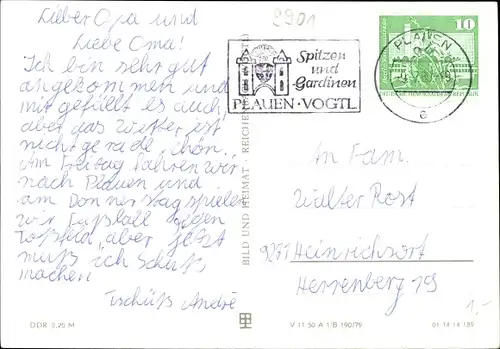 Lieber Opa und
Liebe Oma!
Ich bin sehr gut
angekommen und
mir gefällt es auch
aber das Wetter ist
nicht gerade schön.
Am Freitag fahren wir
nach Plauen und
am Donnerstag spielen
wir Fußball gegen
Toßfeld, aber jetzt
muß ich Schluß
machen.
Tschüß André
DDR 0,20 M
BILD UND HEIMAT · REICHENBACH
V 11 50 A 1/B 190/79
01 14 14 189
2901
Spitzen
und
Gardinen
PLAUEN · VOGTL
PLAUEN
a
10
An Fam.
Walter Rost
9271 Heinrichsort
Herrenberg 19
1,-